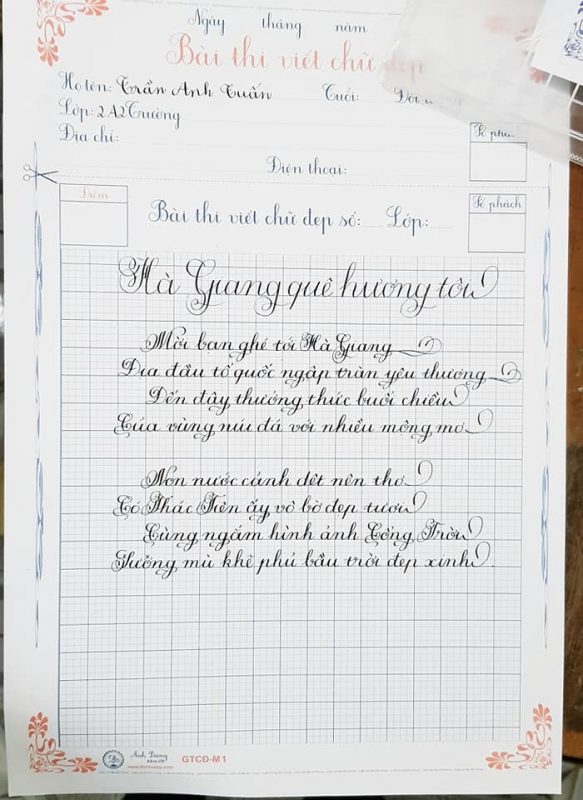 Ngày tháng năm
Bài thi viết chữ đẹp
Họ tên: Trần Anh Tuấn Tuổi:
Lớp: 2A2 Trường
Địa chỉ:
Số phách
Điện thoại:
Điểm
Bài thi viết chữ đẹp số: Lớp:
Số phách
Hà Giang quê hương tôi
Mời bạn ghé tới Hà Giang
Địa đầu tổ quốc ngập tràn yêu thương
Đến đây thưởng thức buổi chiều
Của vùng núi đá với nhiều mộng mơ
Non nước cảnh dệt nên thơ
Có Thác Tiên ấy vô bờ đẹp tươi
Cùng ngắm hình ảnh Cổng Trời
Sương mù khẽ phủ bầu trời đẹp xinh.
Ánh Dương
GTCĐ-M1